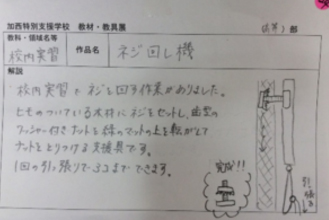 加西特別支援学校 教材・教具展
教科・領域名等
校内実習
作品名
ネジ回し機
解説
校内実習でネジを回す作業がありました。
ヒモのついている木材にネジをセットし、歯型の
ワッシャー付きナットを緑のマットの上を転がして
ナットをとりつける支援具です。
1回の引っ張りで3コまでできます。
完成!!
引っ張る